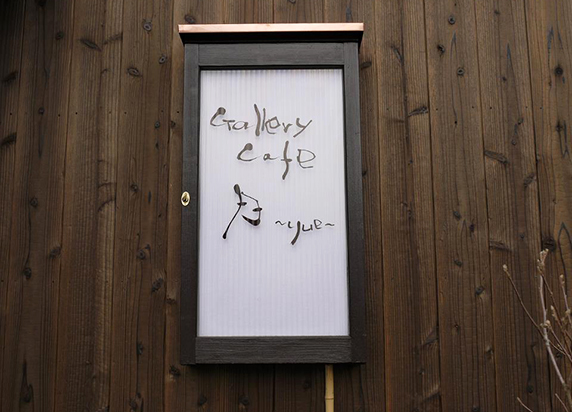 Gallery
Cafe
月 ~yue~